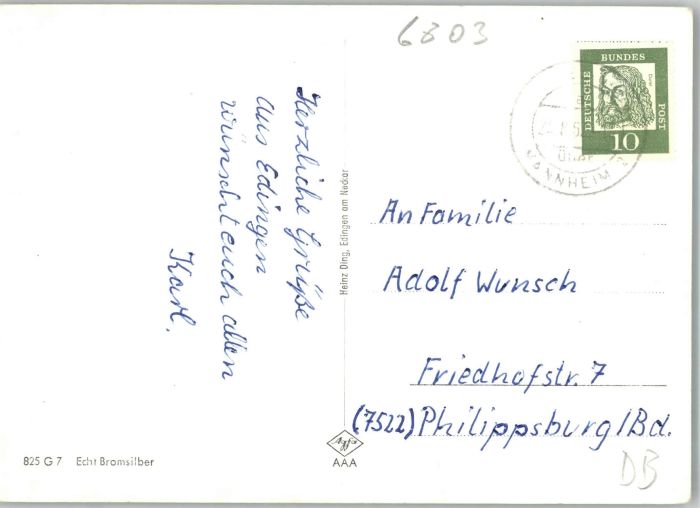 6803
DEUTSCHE
BUNDES
POST
Dürer
10
MANNHEIM 2
Herzliche Grüße
aus Edingen
wünscht euch allen
Karl.
Heinz Ding, Edingen am Neckar
An Familie
Adolf Wunsch
Friedhofstr. 7
(7522) Philippsburg/Bd.
Agfa
AAA
825 G 7 Echt Bromsilber
DB